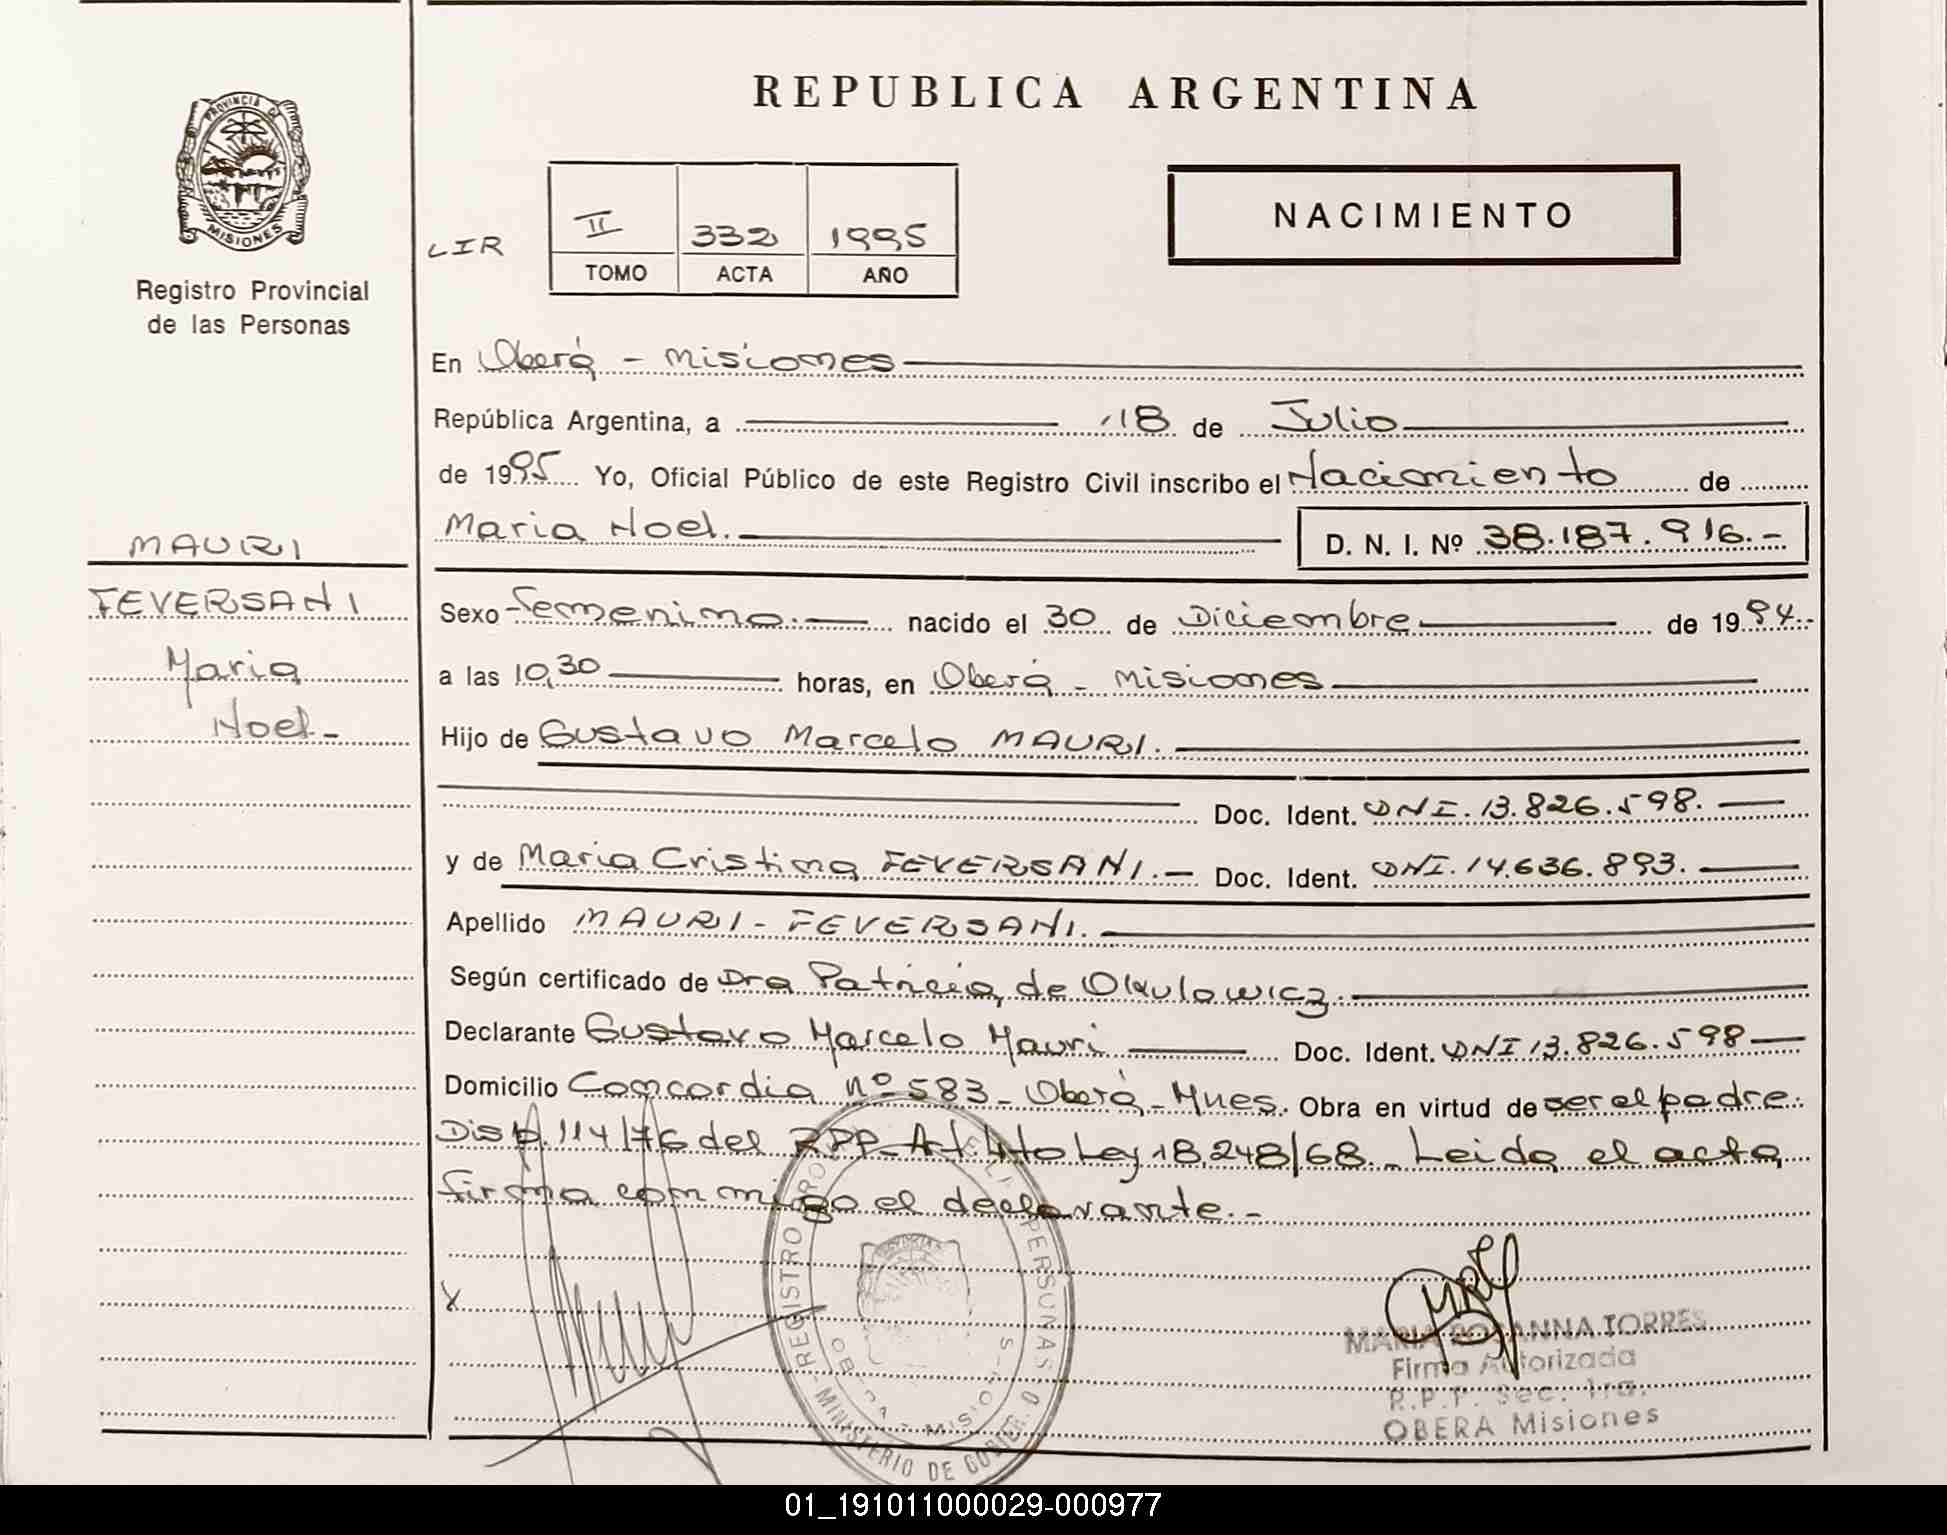 REPUBLICA ARGENTINA
PROVINCIA DE
MISIONES
Registro Provincial
de las Personas
LIR
II 332 1995
TOMO ACTA AÑO
NACIMIENTO
En Oberá - Misiones
República Argentina, a 18 de Julio
de 1995 Yo, Oficial Público de este Registro Civil inscribo el Nacimiento de
Maria Noel. D. N. I. Nº 38.187.916.-
MAURI
FEVERSANI
Maria
Noel-
Sexo Femenino. nacido el 30 de Diciembre de 1994.-
a las 10,30 horas, en Oberá - Misiones
Hijo de Gustavo Marcelo MAURI.
Doc. Ident. DNI. 13.826.598.
y de Maria Cristina FEVERSANI.- Doc. Ident. DNI. 14.636.893.
Apellido MAURI - FEVERSANI.
Según certificado de Dra Patricia de Okulowicz.
Declarante Gustavo Marcelo Mauri Doc. Ident. DNI 13.826.598
Domicilio Concordia nº 583 - Oberá - Mnes. Obra en virtud de ser el padre.
Disp. 114/76 del RPP - Art. 4to Ley 18.248/68. Leida el acta
firma conmigo el declarante.-
X
REGISTRO PERSONAS
MINISTERIO DE GOBIER
MARIA ROSANNA TORRES
Firma Autorizada
R.P.P. Sec. 1ra.
OBERA Misiones
01_191011000029-000977